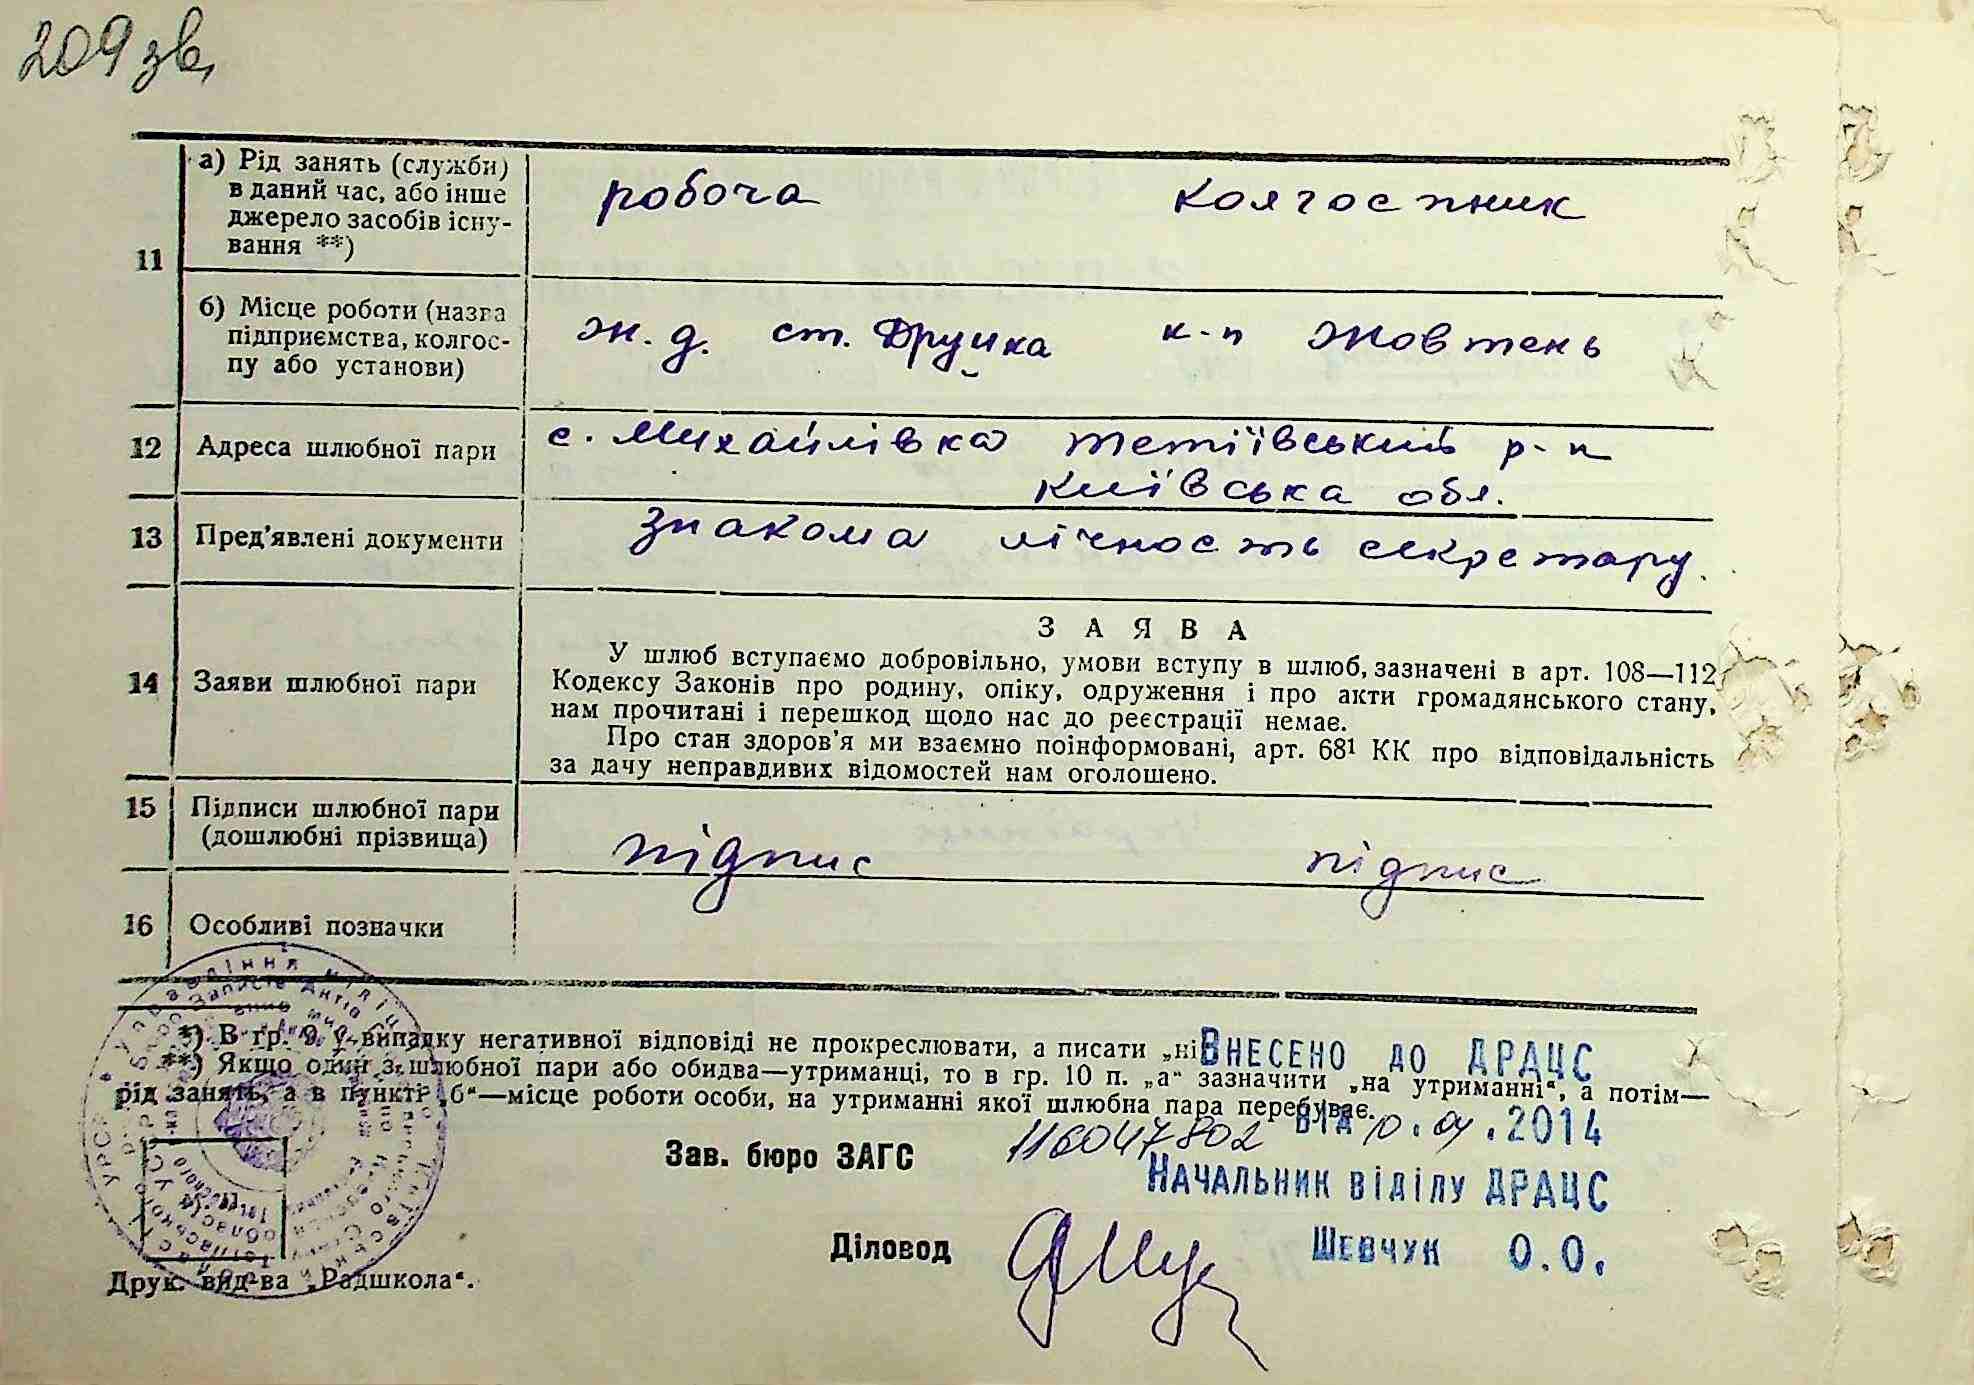 209 зв.
11
а) Рід занять (служби)
в даний час, або інше
джерело засобів існу-
вання **)
робоча колгоспник
б) Місце роботи (назва
підприємства, колгос-
пу або установи)
ж.д. ст. к-п Жовтень
12 Адреса шлюбної пари
с. Михайлівка Тетіївський р-н
Київська обл.
13 Пред’явлені документи
знакома лічность секретару.
14 Заяви шлюбної пари
ЗАЯВА
У шлюб вступаємо добровільно, умови вступу в шлюб, зазначені в арт. 108—112
Кодексу Законів про родину, опіку, одруження і про акти громадянського стану,
нам прочитані і перешкод щодо нас до реєстрації немає.
Про стан здоров’я ми взаємно поінформовані, арт. 68¹ КК про відповідальність
за дачу неправдивих відомостей нам оголошено.
15 Підписи шлюбної пари
(дошлюбні прізвища)
підпис підпис
16 Особливі позначки
*) В гр. 9 у випадку негативної відповіді не прокреслювати, а писати „ні
ВНЕСЕНО ДО ДРАЦС
**) Якщо один з шлюбної пари або обидва—утриманці, то в гр. 10 п. „а“ зазначити „на утриманні“, а потім—
рід занять, а в пункті „б“—місце роботи особи, на утриманні якої шлюбна пара перебуває.
116047802 ВІД 10.04.2014
Зав. бюро ЗАГС
НАЧАЛЬНИК ВІДІЛУ ДРАЦС
Діловод
ШЕВЧУК О.О.
Друк. вид-ва „Радшкола“.